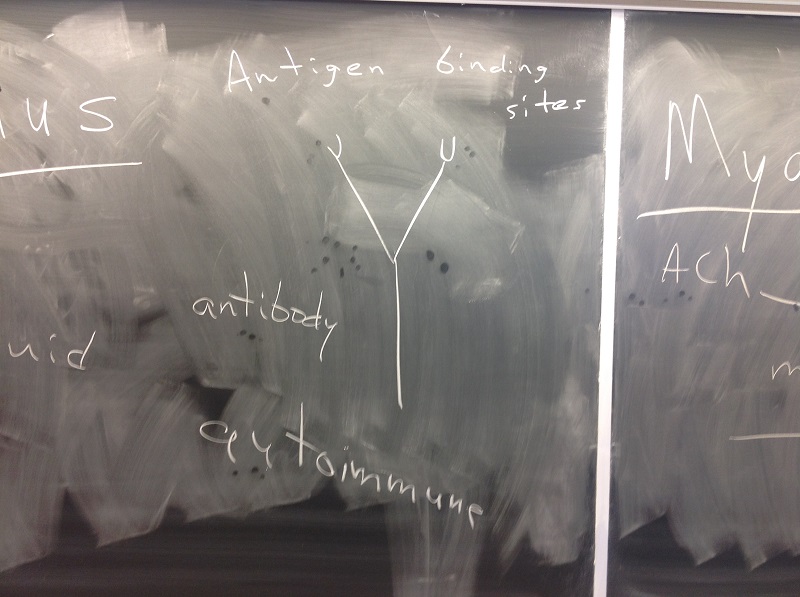 Antigen binding
sites
antibody
autoimmune
ACh